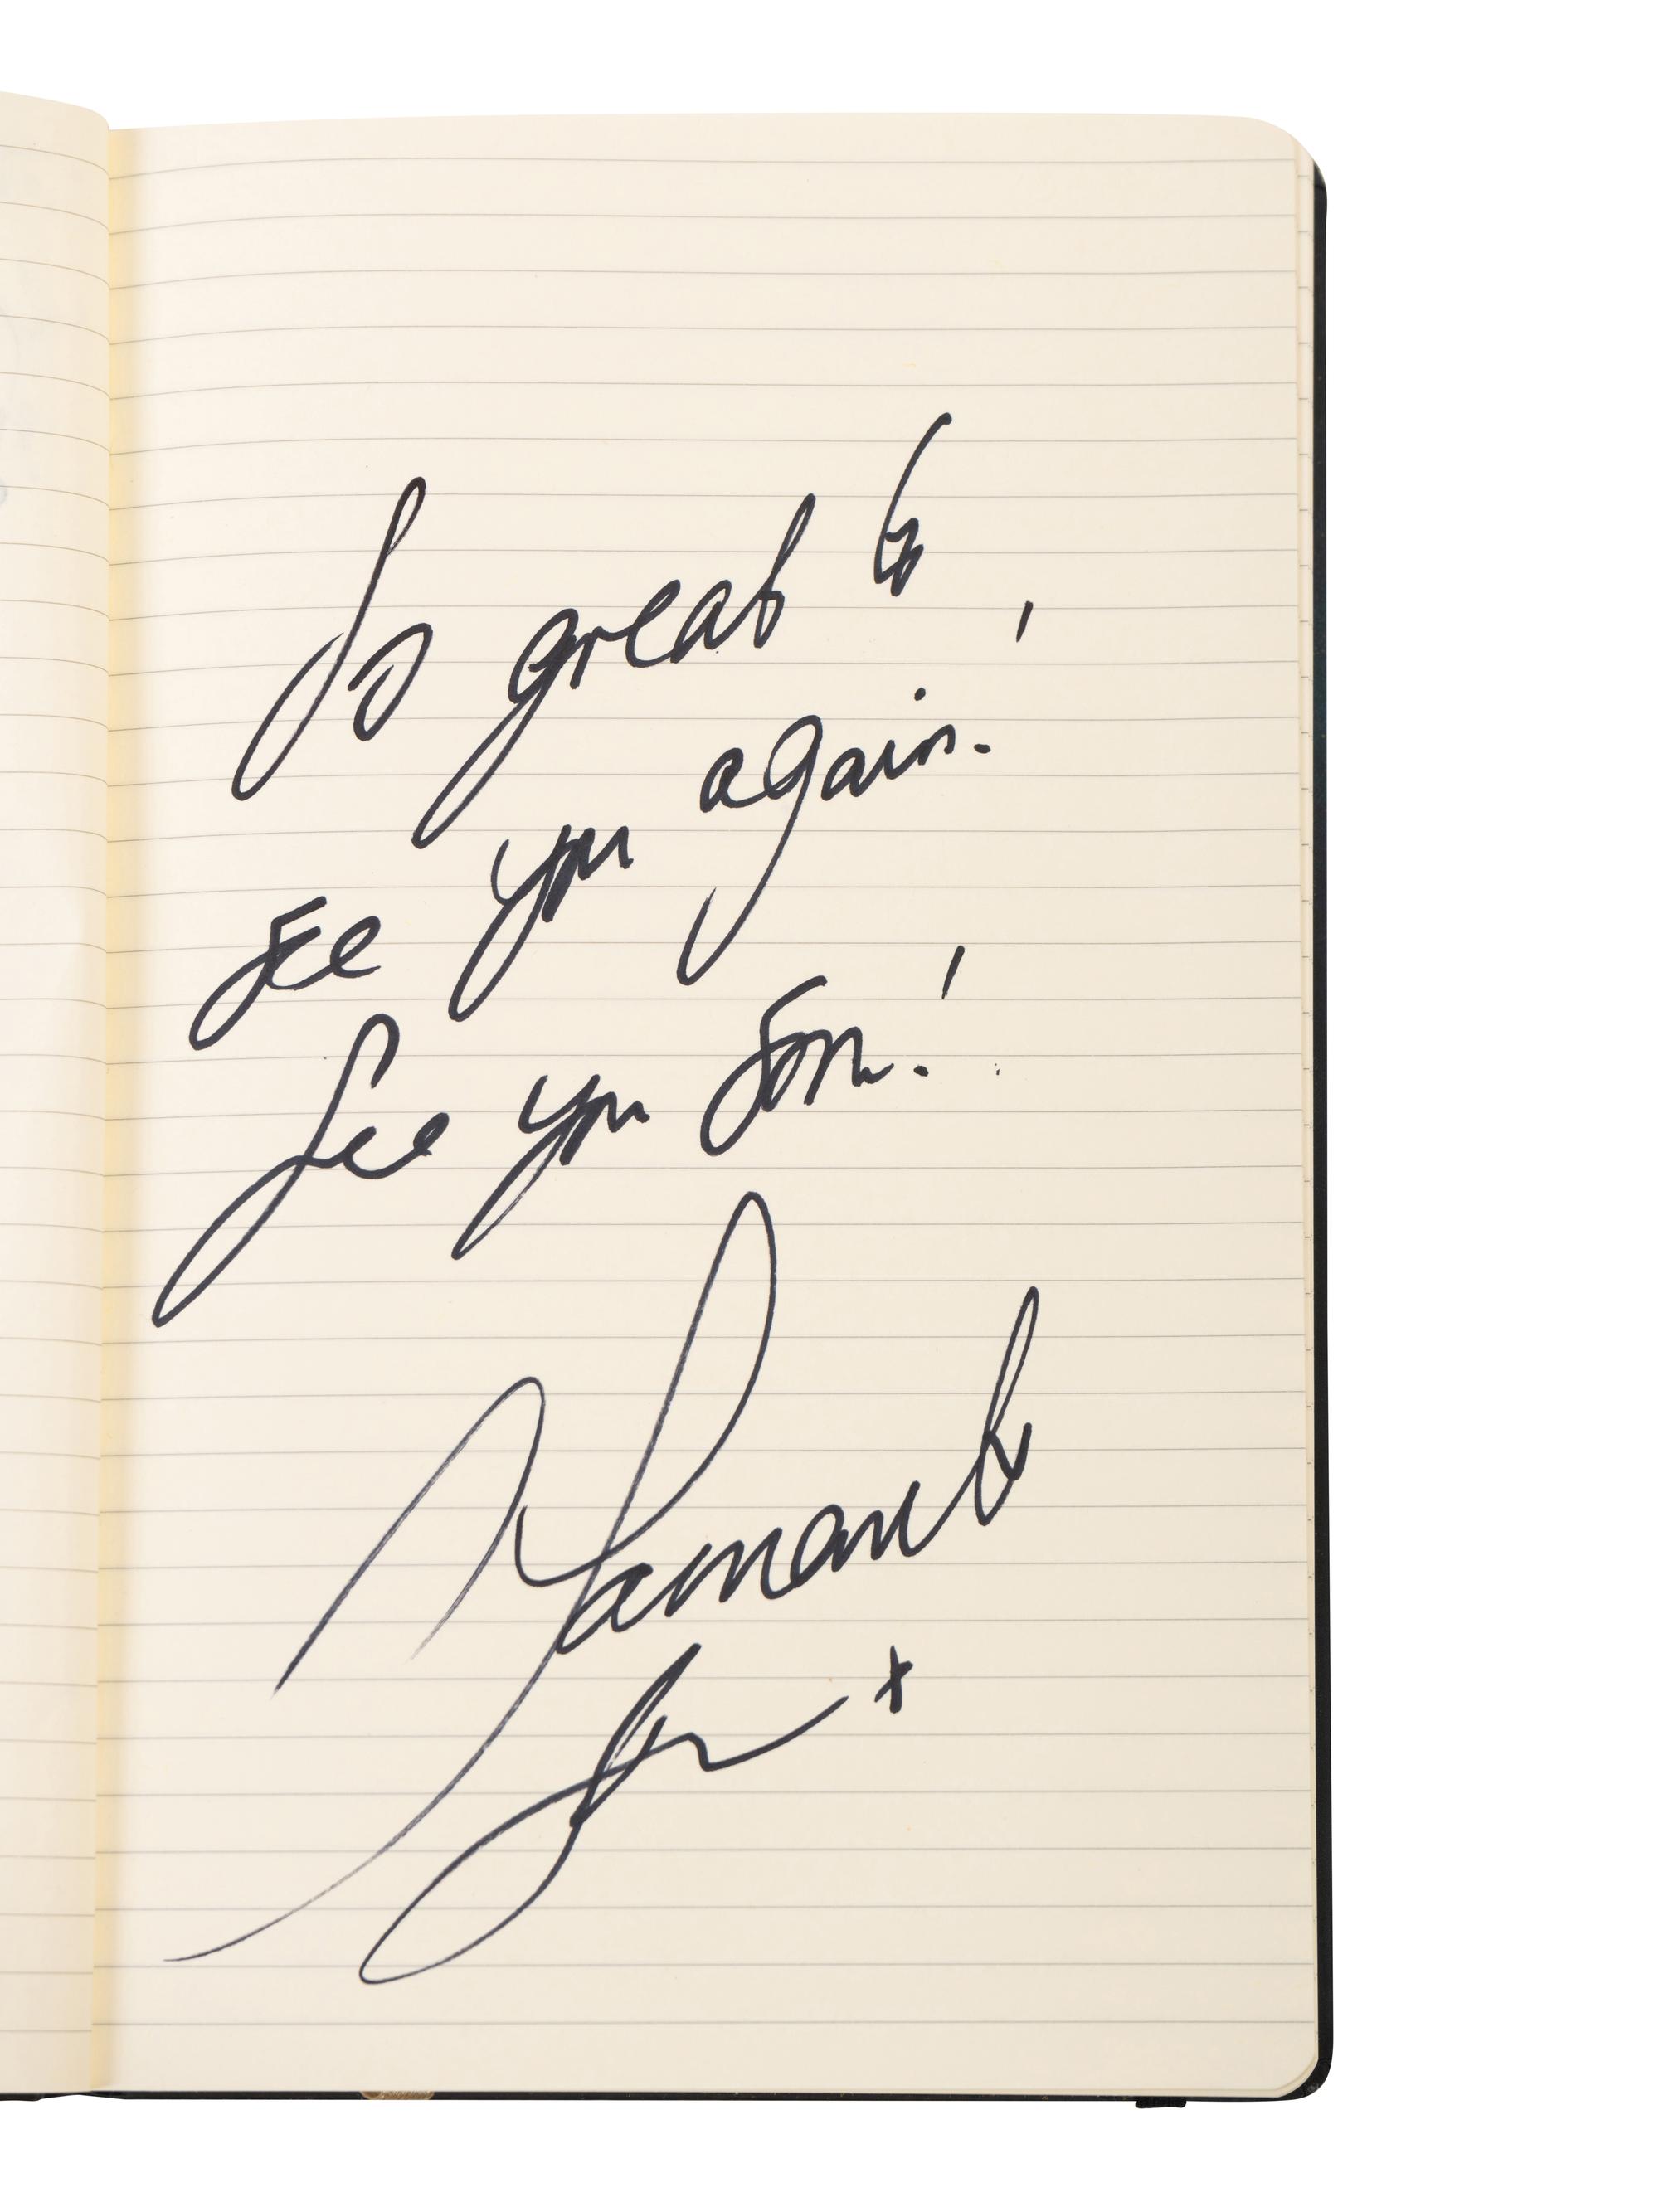 So great to
see you again!
See you soon!
Samantha